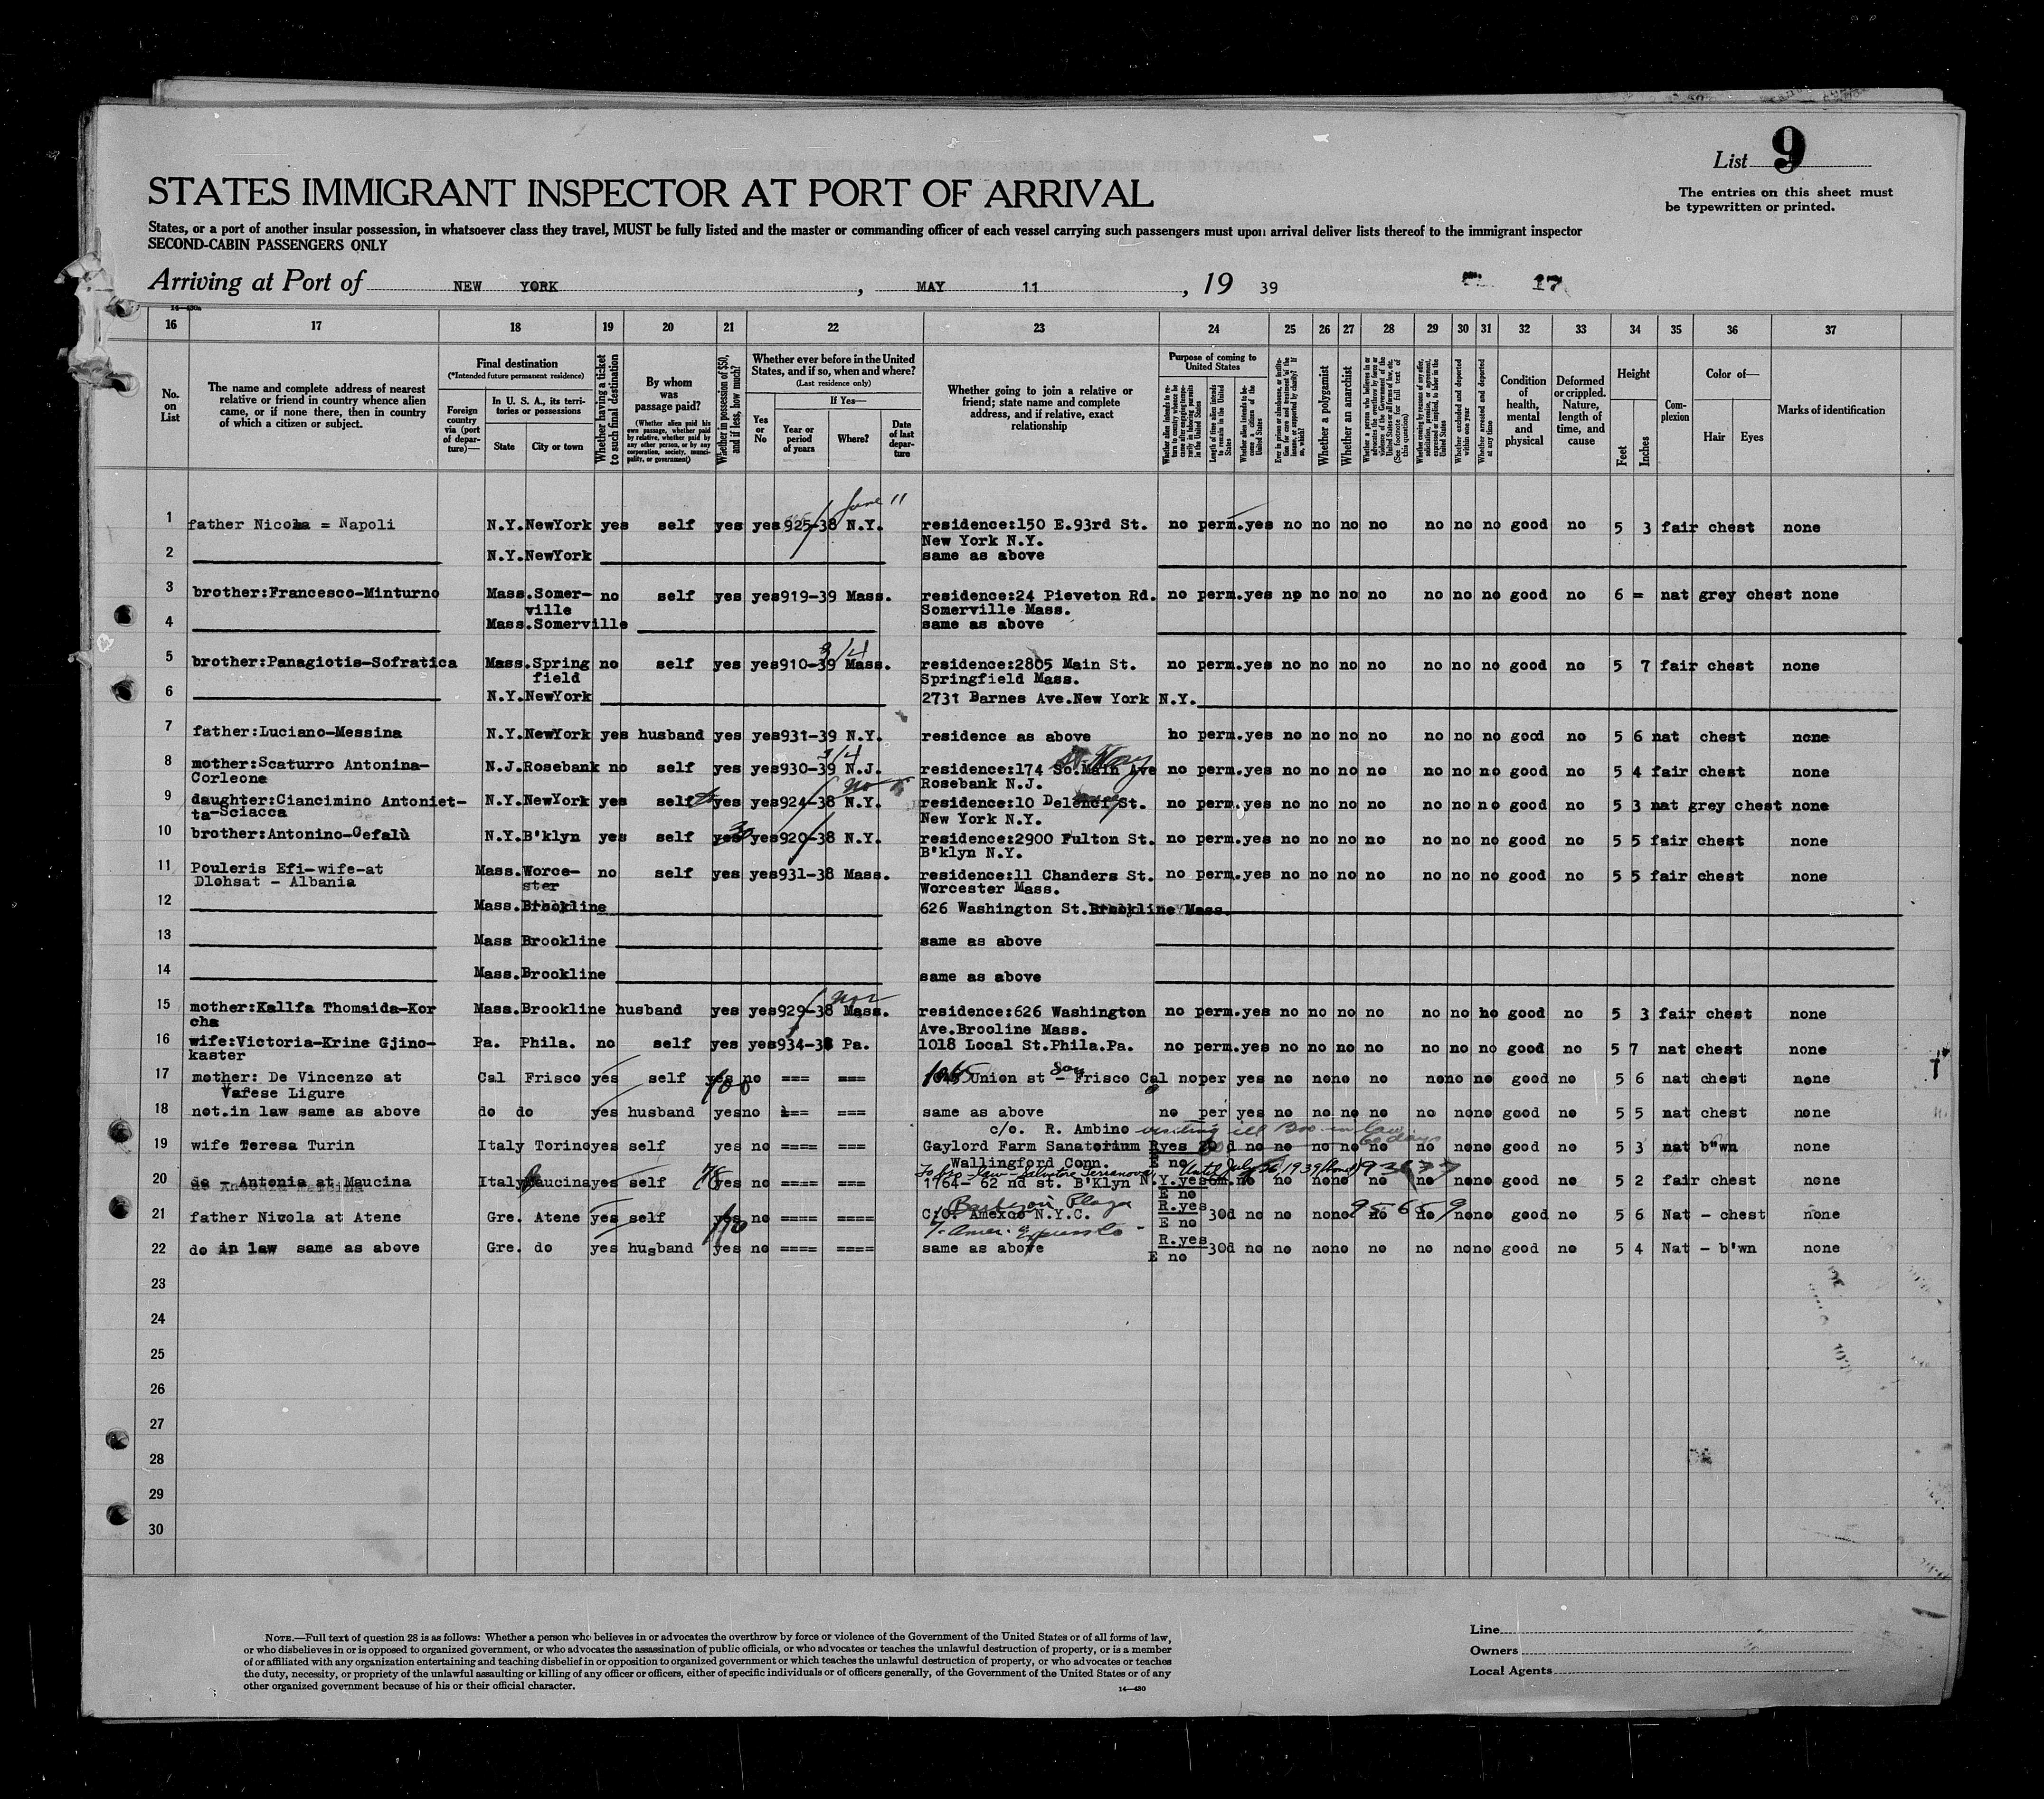 List 9
The entries on this sheet must
be typewritten or printed.
STATES IMMIGRANT INSPECTOR AT PORT OF ARRIVAL
States, or a port of another insular possession, in whatsoever class they travel, MUST be fully listed and the master or commanding officer of each vessel carrying such passengers must upon arrival deliver lists thereof to the immigrant inspector
SECOND-CABIN PASSENGERS ONLY
Arriving at Port of NEW YORK , MAY 11 , 19 39 17
16 17 18 19 20 21 22 23 24 25 26 27 28 29 30 31 32 33 34 35 36 37
No. on List
The name and complete address of nearest relative or friend in country whence alien came, or if none there, then in country of which a citizen or subject.
Final destination
(*Intended future permanent residence)
Foreign country via (port of departure)—
In U. S. A., its territories or possessions
State
City or town
Whether having a ticket to such final destination
By whom was passage paid?
(Whether alien paid his own passage, whether paid by relative, whether paid by any other person, or by any corporation, society, municipality, or government)
Whether in possession of $50, and if less, how much?
Whether ever before in the United States, and if so, when and where?
(Last residence only)
Yes or No
If Yes—
Year or period of years
Where?
Date of last departure
Whether going to join a relative or friend; state name and complete address, and if relative, exact relationship
Purpose of coming to United States
Length of time alien intends to remain in the United States
Whether alien intends to become a citizen of the United States
Whether a polygamist
Whether an anarchist
Whether excluded and deported within one year
Whether arrested and deported at any time
Condition of health, mental and physical
Deformed or crippled. Nature, length of time, and cause
Height
Feet
Inches
Complexion
Color of—
Hair
Eyes
Marks of identification
June 11
1 father Nicola = Napoli N.Y. NewYork yes self yes yes 925-38 N.Y. residence:150 E.93rd St. no perm. yes no no no no no no no good no 5 3 fair chest none
New York N.Y.
2 N.Y. NewYork same as above
3 brother:Francesco-Minturno Mass. Somer- no self yes yes 919-39 Mass. residence:24 Pieveton Rd. no perm. yes no no no no no no no good no 6 = nat grey chest none
ville Somerville Mass.
4 Mass. Somerville same as above
5 brother:Panagiotis-Sofratica Mass. Spring no self yes yes 910-39 Mass. residence:2805 Main St. no perm. yes no no no no no no no good no 5 7 fair chest none
field Springfield Mass.
6 N.Y. NewYork 2731 Barnes Ave.New York N.Y.
7 father:Luciano-Messina N.Y. NewYork yes husband yes yes 931-39 N.Y. residence as above no perm. yes no no no no no no no good no 5 6 nat chest none
8 mother:Scaturro Antonina- N.J. Rosebank no self yes yes 930-39 N.J. residence:174 So.Main Ave no perm. yes no no no no no no no good no 5 4 fair chest none
Corleone Rosebank N.J.
9 daughter:Ciancimino Antoniet- N.Y. NewYork yes self yes yes 924-38 N.Y. residence:10 St. no perm. yes no no no no no no no good no 5 3 nat grey chest none
ta-Sciacca New York N.Y.
10 brother:Antonino-Cefalù N.Y. B'klyn yes self yes 30 yes 920-38 N.Y. residence:2900 Fulton St. no perm. yes no no no no no no no good no 5 5 fair chest none
B'klyn N.Y.
11 Pouleris Efi-wife-at Mass. Worce- no self yes yes 931-38 Mass. residence:11 Chanders St. no perm. yes no no no no no no no good no 5 5 fair chest none
Dlohsat - Albania ster Worcester Mass.
12 Mass. Brookline 626 Washington St.Brookline Mass.
13 Mass Brookline same as above
14 Mass. Brookline same as above
15 mother:Kallfa Thomaida-Kor Mass. Brookline husband yes yes 929-38 Mass. residence:626 Washington no perm. yes no no no no no no no good no 5 3 fair chest none
cha Ave.Brooline Mass.
16 wife:Victoria-Krine Gjino- Pa. Phila. no self yes yes 934-38 Pa. 1018 Local St.Phila.Pa. no perm. yes no no no no no no no good no 5 7 nat chest none
kaster
17 mother: De Vincenzo at Cal Frisco yes self yes 100 no === === 1065 Union st - Frisco Cal no per yes no no no no no no no good no 5 6 nat chest none
Varese Ligure
18 not.in law same as above do do yes husband yes no === === same as above no per yes no no no no no no no good no 5 5 nat chest none
c/o. R. Ambino visiting ill Bro in law
60 days
19 wife Teresa Turin Italy Torino yes self yes no ==== === Gaylord Farm Sanatorium R yes d no no no no no no no no good no 5 3 nat b"wn none
Wallingford Conn. E no
To bro-law-Salvatore Terranova Until July 1939
20 do - Antonia at Maucina Italy Maucina yes self yes no ==== === 1764- 62 nd st. B'Klyn N.Y. yes 6m. no no no no no no no no good no 5 2 fair chest none
E no
21 father Nicola at Atene Gre. Atene yes self yes no ==== ==== C/O. Amexco N.Y.C. R.yes 30d no no no no no no no no good no 5 6 Nat - chest none
Plaza 95659
E no
22 do in law same as above Gre. do yes husband yes no ==== ==== same as above R.yes 30d no no no no no no no no good no 5 4 Nat - b"wn none
E no
23
24
25
26
27
28
29
30
NOTE.—Full text of question 28 is as follows: Whether a person who believes in or advocates the overthrow by force or violence of the Government of the United States or of all forms of law,
or who disbelieves in or is opposed to organized government, or who advocates the assassination of public officials, or who advocates or teaches the unlawful destruction of property, or is a member
of or affiliated with any organization entertaining and teaching disbelief in or opposition to organized government or which teaches the unlawful destruction of property, or who advocates or teaches
the duty, necessity, or propriety of the unlawful assaulting or killing of any officer or officers, either of specific individuals or of officers generally, of the Government of the United States or of any
other organized government because of his or their official character.
14—430
Line
Owners
Local Agents